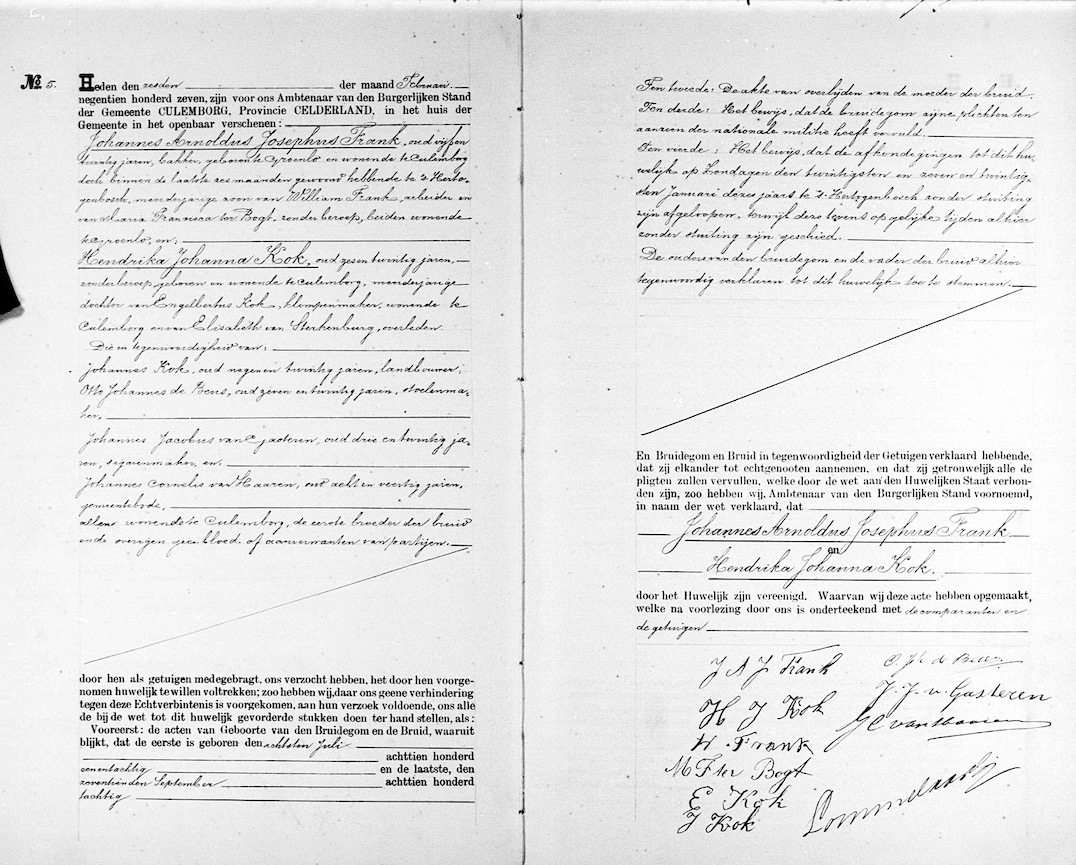 No 5.
Heden den zesden der maand Februari
negentien honderd zeven, zijn voor ons Ambtenaar van den Burgerlijken Stand
der Gemeente CULEMBORG, Provincie GELDERLAND, in het huis der
Gemeente in het openbaar verschenen:
Johannes Arnoldus Josephus Frank, oud vijf en
twintig jaren, bakker, geboren te Groenlo en wonende te Culemborg
doch binnen de laatste zes maanden gewoond hebbende te 's Herto-
genbosch, meerderjarige zoon van William Frank, arbeider en
van Maria Francisca ter Bogt, zonder beroep, beiden wonende
te Groenlo, en;
Hendrika Johanna Kok, oud zes en twintig jaren,
zonder beroep, geboren en wonende te Culemborg, meerderjarige
dochter van Engelbertus Kok, klompenmaker, wonende te
Culemborg en van Elisabeth van Sterkenburg, overleden.
Die in tegenwoordigheid van:
Johannes Kok, oud negen en twintig jaren, landbouwer;
Otto Johannes de Beus, oud zeven en twintig jaren, stoelenma-
ker,
Johannes Jacobus van Gasteren, oud drie en twintig ja-
ren, sigarenmaker, en
Johannes Cornelis van Haaren, oud acht en veertig jaren,
gemeentebode,
allen wonende te Culemborg, de eerste broeder der bruid
en de overigen geen bloed- of aanverwanten van partijen.
door hen als getuigen medegebragt, ons verzocht hebben, het door hen voorge-
nomen huwelijk te willen voltrekken; zoo hebben wij, daar ons geene verhindering
tegen deze Echtverbintenis is voorgekomen, aan hun verzoek voldoende, ons alle
de bij de wet tot dit huwelijk gevorderde stukken doen ter hand stellen, als:
Vooreerst: de acten van Geboorte van den Bruidegom en de Bruid, waaruit
blijkt, dat de eerste is geboren den achtsten Juli
achttien honderd
een en tachtig en de laatste, den
zeventienden September achttien honderd
tachtig
Ten tweede: De akte van overlijden van de moeder der bruid.
Ten derde: Het bewijs, dat de bruidegom zijne plichten ten
aanzien der nationale militie heeft vervuld.
Ten vierde: Het bewijs, dat de afkondigingen tot dit hu-
welijk op Zondagen den twintigsten en zeven en twintig-
sten Januari dezes jaars te 's-Hertogenbosch zonder stuiting
zijn afgeloopen, terwijl deze tevens op gelijke tijden alhier
zonder stuiting zijn geschied.
De ouders van den bruidegom en de vader der bruid alhier
tegenwoordig verklaren tot dit huwelijk toe te stemmen.
En Bruidegom en Bruid in tegenwoordigheid der Getuigen verklaard hebbende,
dat zij elkander tot echtgenooten aannemen, en dat zij getrouwelijk alle de
pligten zullen vervullen, welke door de wet aan den Huwelijken Staat verbon-
den zijn, zoo hebben wij, Ambtenaar van den Burgerlijken Stand voornoemd,
in naam der wet verklaard, dat
Johannes Arnoldus Josephus Frank
en
Hendrika Johanna Kok.
door het Huwelijk zijn vereenigd. Waarvan wij deze acte hebben opgemaakt,
welke na voorlezing door ons is onderteekend met de comparanten en
de getuigen
J A J Frank
O. Jh. de Beus
H J Kok
J. J. v. Gasteren
J C van Haaren
W. Frank
M F ter Bogt
E Kok
J Kok